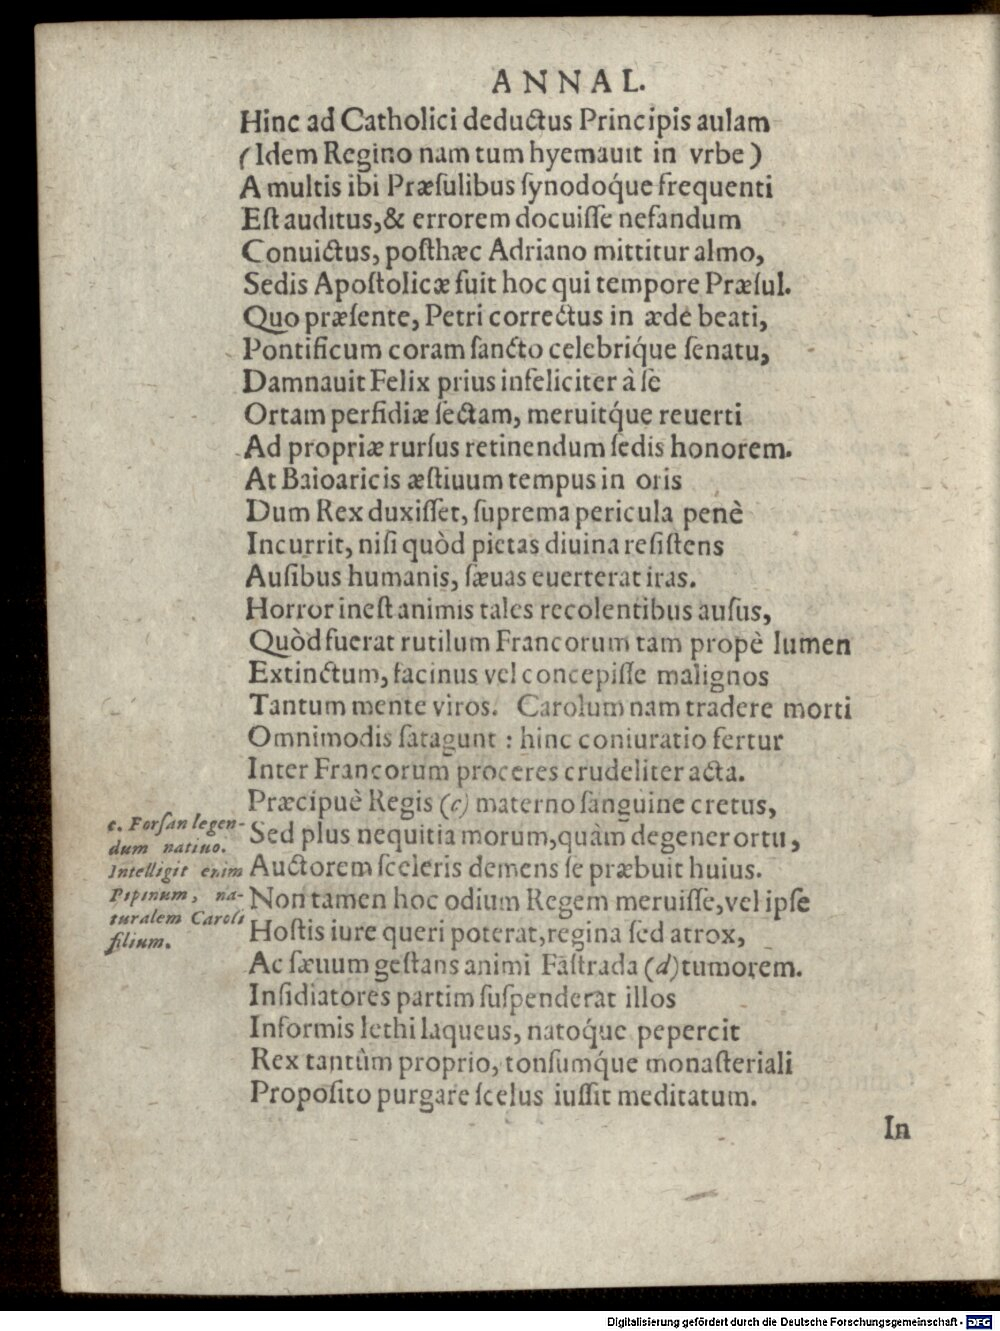 ANNAL.
Hinc ad Catholici deductus Principis aulam
(Idem Regino nam tum hyemauit in vrbe)
A multis ibi Præſulibus ſynodoq́ue frequenti
Eſt auditus,& errorem docuiſſe nefandum
Conuictus, poſthæc Adriano mittitur almo,
Sedis Apoſtolicæ fuit hoc qui tempore Præſul.
Quo præſente, Petri correctus in æde beati,
Pontificum coram ſancto celebriq́ue ſenatu,
Damnauit Felix prius infeliciter à ſe
Ortam perfidiæ ſectam, meruitq́ue reuerti
Ad propriæ rurſus retinendum ſedis honorem.
At Baioaricis æſtiuum tempus in oris
Dum Rex duxiſſet, ſuprema pericula penè
Incurrit, niſi quòd pietas diuina reſiſtens
Auſibus humanis, ſæuas euerterat iras.
Horror ineſt animis tales recolentibus auſus,
Quòd fuerat rutilum Francorum tam propè lumen
Extinctum, facinus vel concepiſſe malignos
Tantum mente viros. Carolum nam tradere morti
Omnimodis ſatagunt : hinc coniuratio fertur
Inter Francorum proceres crudeliter acta.
Præcipuè Regis (c) materno ſanguine cretus,
Sed plus nequitia morum,quàm degener ortu,
Auctorem ſceleris demens ſe præbuit huius.
Non tamen hoc odium Regem meruiſſe,vel ipſe
Hoſtis iure queri poterat,regina ſed atrox,
Ac ſæuum geſtans animi Faſtrada (d) tumorem.
Inſidiatores partim ſuſpenderat illos
Informis lethi laqueus, natoq́ue pepercit
Rex tantùm proprio, tonſumq́ue monaſteriali
Propoſito purgare ſcelus iuſſit meditatum.
In
c. Forſan legen-
dum natiuo.
Intelligit enim
Pipinum, na-
turalem Caroli
filium.
Digitalisierung gefördert durch die Deutsche Forschungsgemeinschaft - DFG